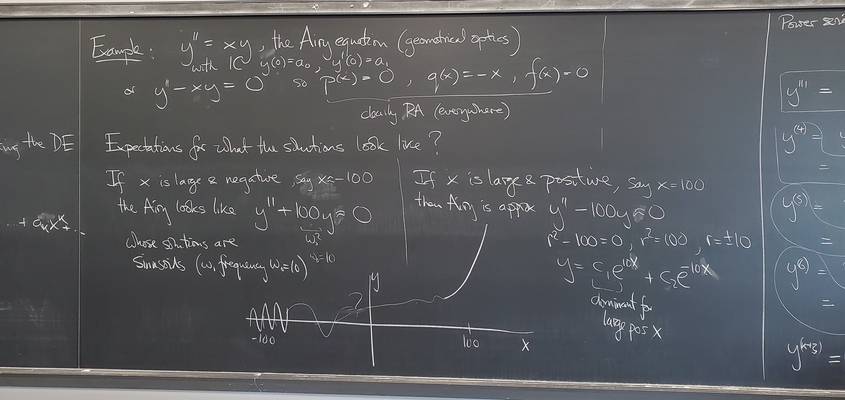 ing the DE
... + aₖxᵏ + ...
Example: y'' = xy, the Airy equation (geometrical optics)
with IC y(0) = a₀, y'(0) = a₁
or y'' - xy = 0 so p(x) = 0, q(x) = -x, f(x) = 0
clearly RA (everywhere)
Expectations for what the solutions look like?
If x is large & negative, say x ≈ -100
the Airy looks like y'' + 100y ≈ 0
ω₀²
whose solutions are
sinusoids (w, frequency ω₀ = 10)
If x is large & positive, say x = 100
then Airy is approx y'' - 100y ≈ 0
r² - 100 = 0, r² = 100, r = ±10
y = c₁e^{10x} + c₂e^{-10x}
dominant for
large pos x
y
?
-100
100
x
Power serie
y''' =
y⁽⁴⁾ =
=
y⁽⁵⁾ =
=
y⁽⁶⁾ =
=
y⁽ᵏ⁺³⁾ =